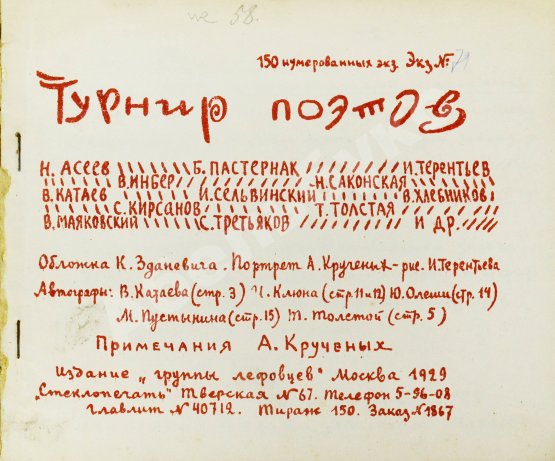 № 58.
150 нумерованных экз. Экз № 71
Турнир поэтов
Н. АСЕЕВ Б. ПАСТЕРНАК И. ТЕРЕНТЬЕВ
В. ИНБЕР Н. САКОНСКАЯ
В. КАТАЕВ И. СЕЛЬВИНСКИЙ В. ХЛЕБНИКОВ
С. КИРСАНОВ Т. ТОЛСТАЯ
В. МАЯКОВСКИЙ С. ТРЕТЬЯКОВ И ДР.
Обложка К. Зданевича. Портрет А. Крученых – рис. И. Терентьева
Автографы: В. Катаева (стр. 3) И. Клюна (стр. 11 и 12) Ю. Олеши (стр. 14)
М. Пустынина (стр. 15) Т. Толстой (стр. 5)
Примечания А. Крученых
Издание „группы лефовцев" Москва 1929
„Стеклопечать" Тверская № 67. Телефон 5-96-08
Главлит № 40712. Тираж 150. Заказ № 1867